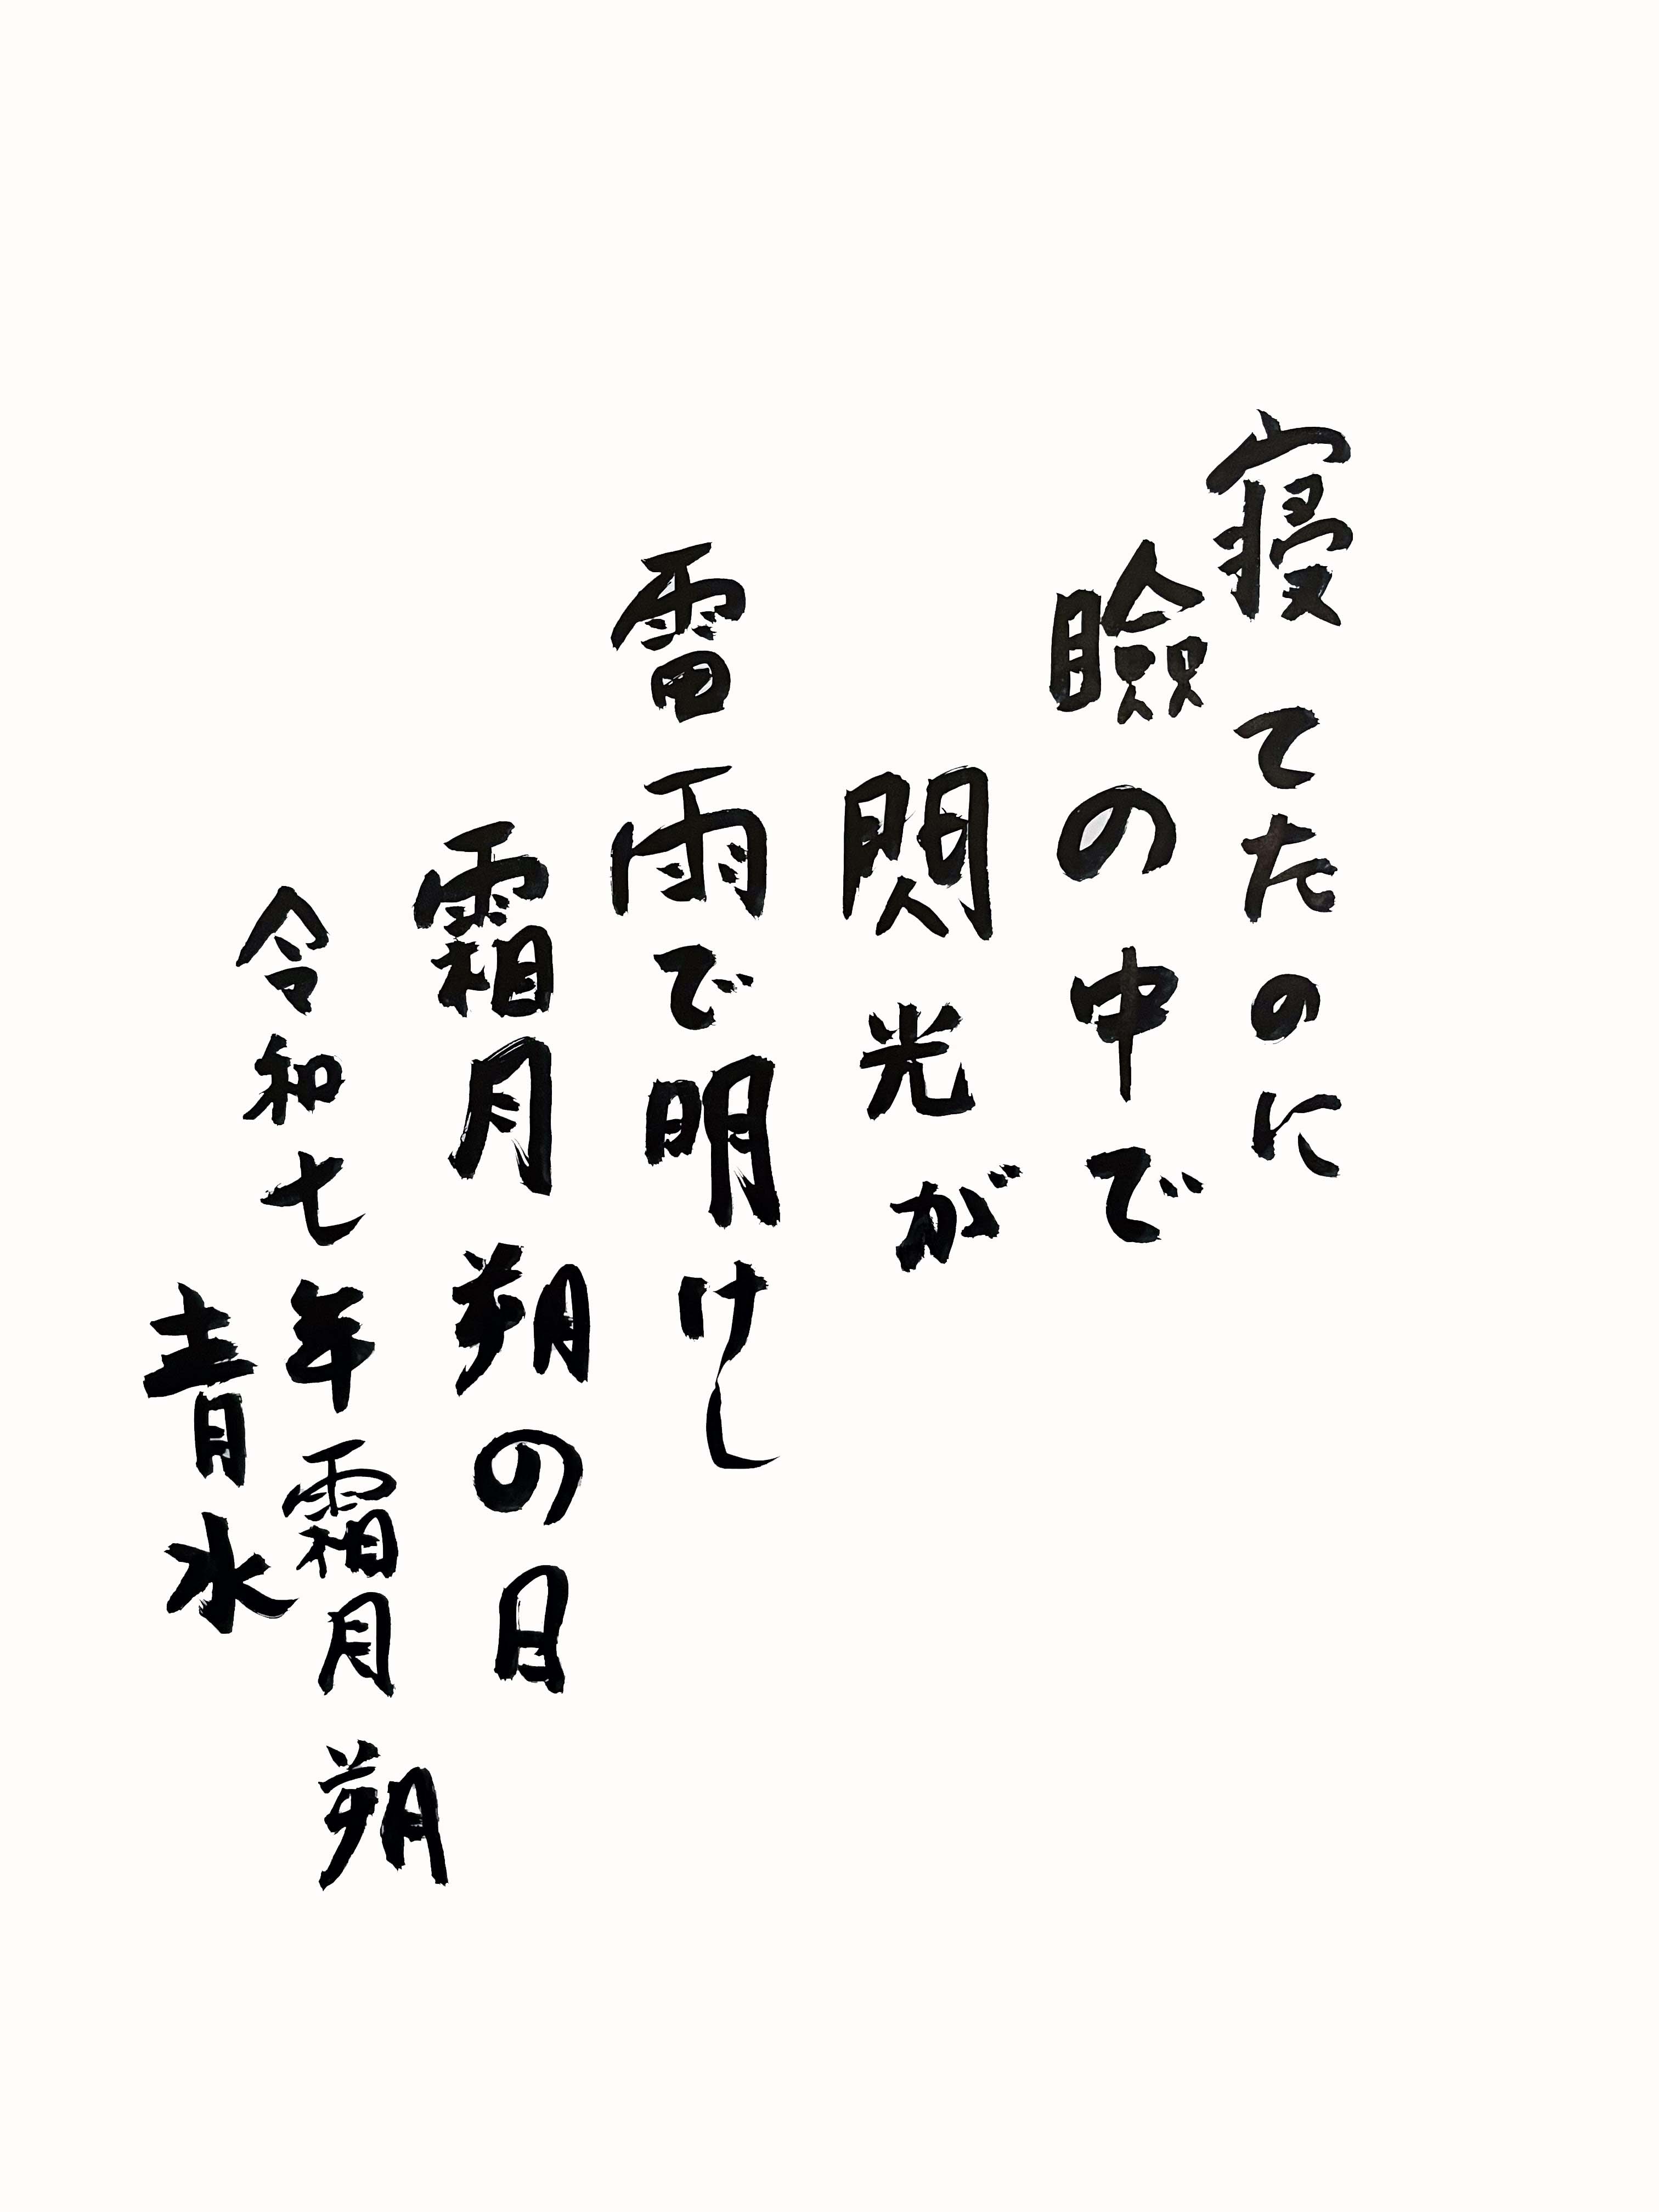 寝てたのに
瞼の中で
閃光が
雷雨で明けし
霜月朔の日
令和七年霜月朔
青水